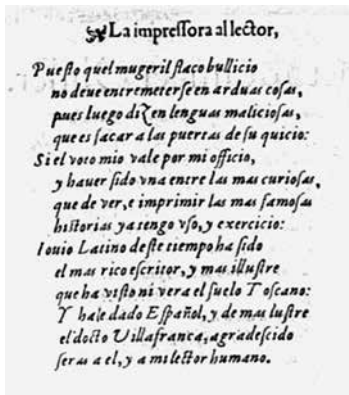 La impressora al lector,
Puesto quel mugeril flaco bullicio
no deue entremeterse en arduas cosas,
pues luego dizen lenguas maliciosas,
que es sacar a las puertas de su quicio:
Si el voto mio vale por mi officio,
y hauer sido vna entre las mas curiosas,
que de ver, e imprimir las mas famosas
historias ya tengo vso, y exercicio:
Iouio Latino deste tiempo ha sido
el mas rico escritor, y mas illustre
que ha visto ni vera el suelo Toscano:
Y hale dado Español, y de mas lustre
el docto Villafranca, agradescido
seras a el, y a mi lector humano.